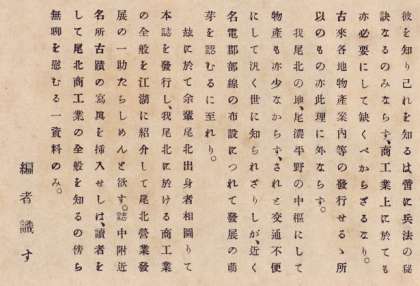 彼を知り己れを知るは啻に兵法の秘
訣なるのみならず、商工業上に於ても
亦必要にして缺くべからざるなり。
古來各地物產案內等の發行せるゝ所
以のもの亦此理に外ならず。
我尾北の地、尾濃平野の中樞にして
物產も亦少なからず、されど交通不便
にして汎く世に知られざりしが、近く
名電郡部線の布設につれて發展の萌
芽を認むるに至れり。
玆に於て余輩尾北出身者相圖りて
本誌を發行し、我尾北に於ける商工業
の全般を江湖に紹介して尾北營業發
展の一助たらしめんと欲す。誌中附近
名所古蹟の寫眞を揷入せしは、讀者を
して尾北商工業の全般を知るの傍ら
無聊を慰むる一資料のみ。
編者識す